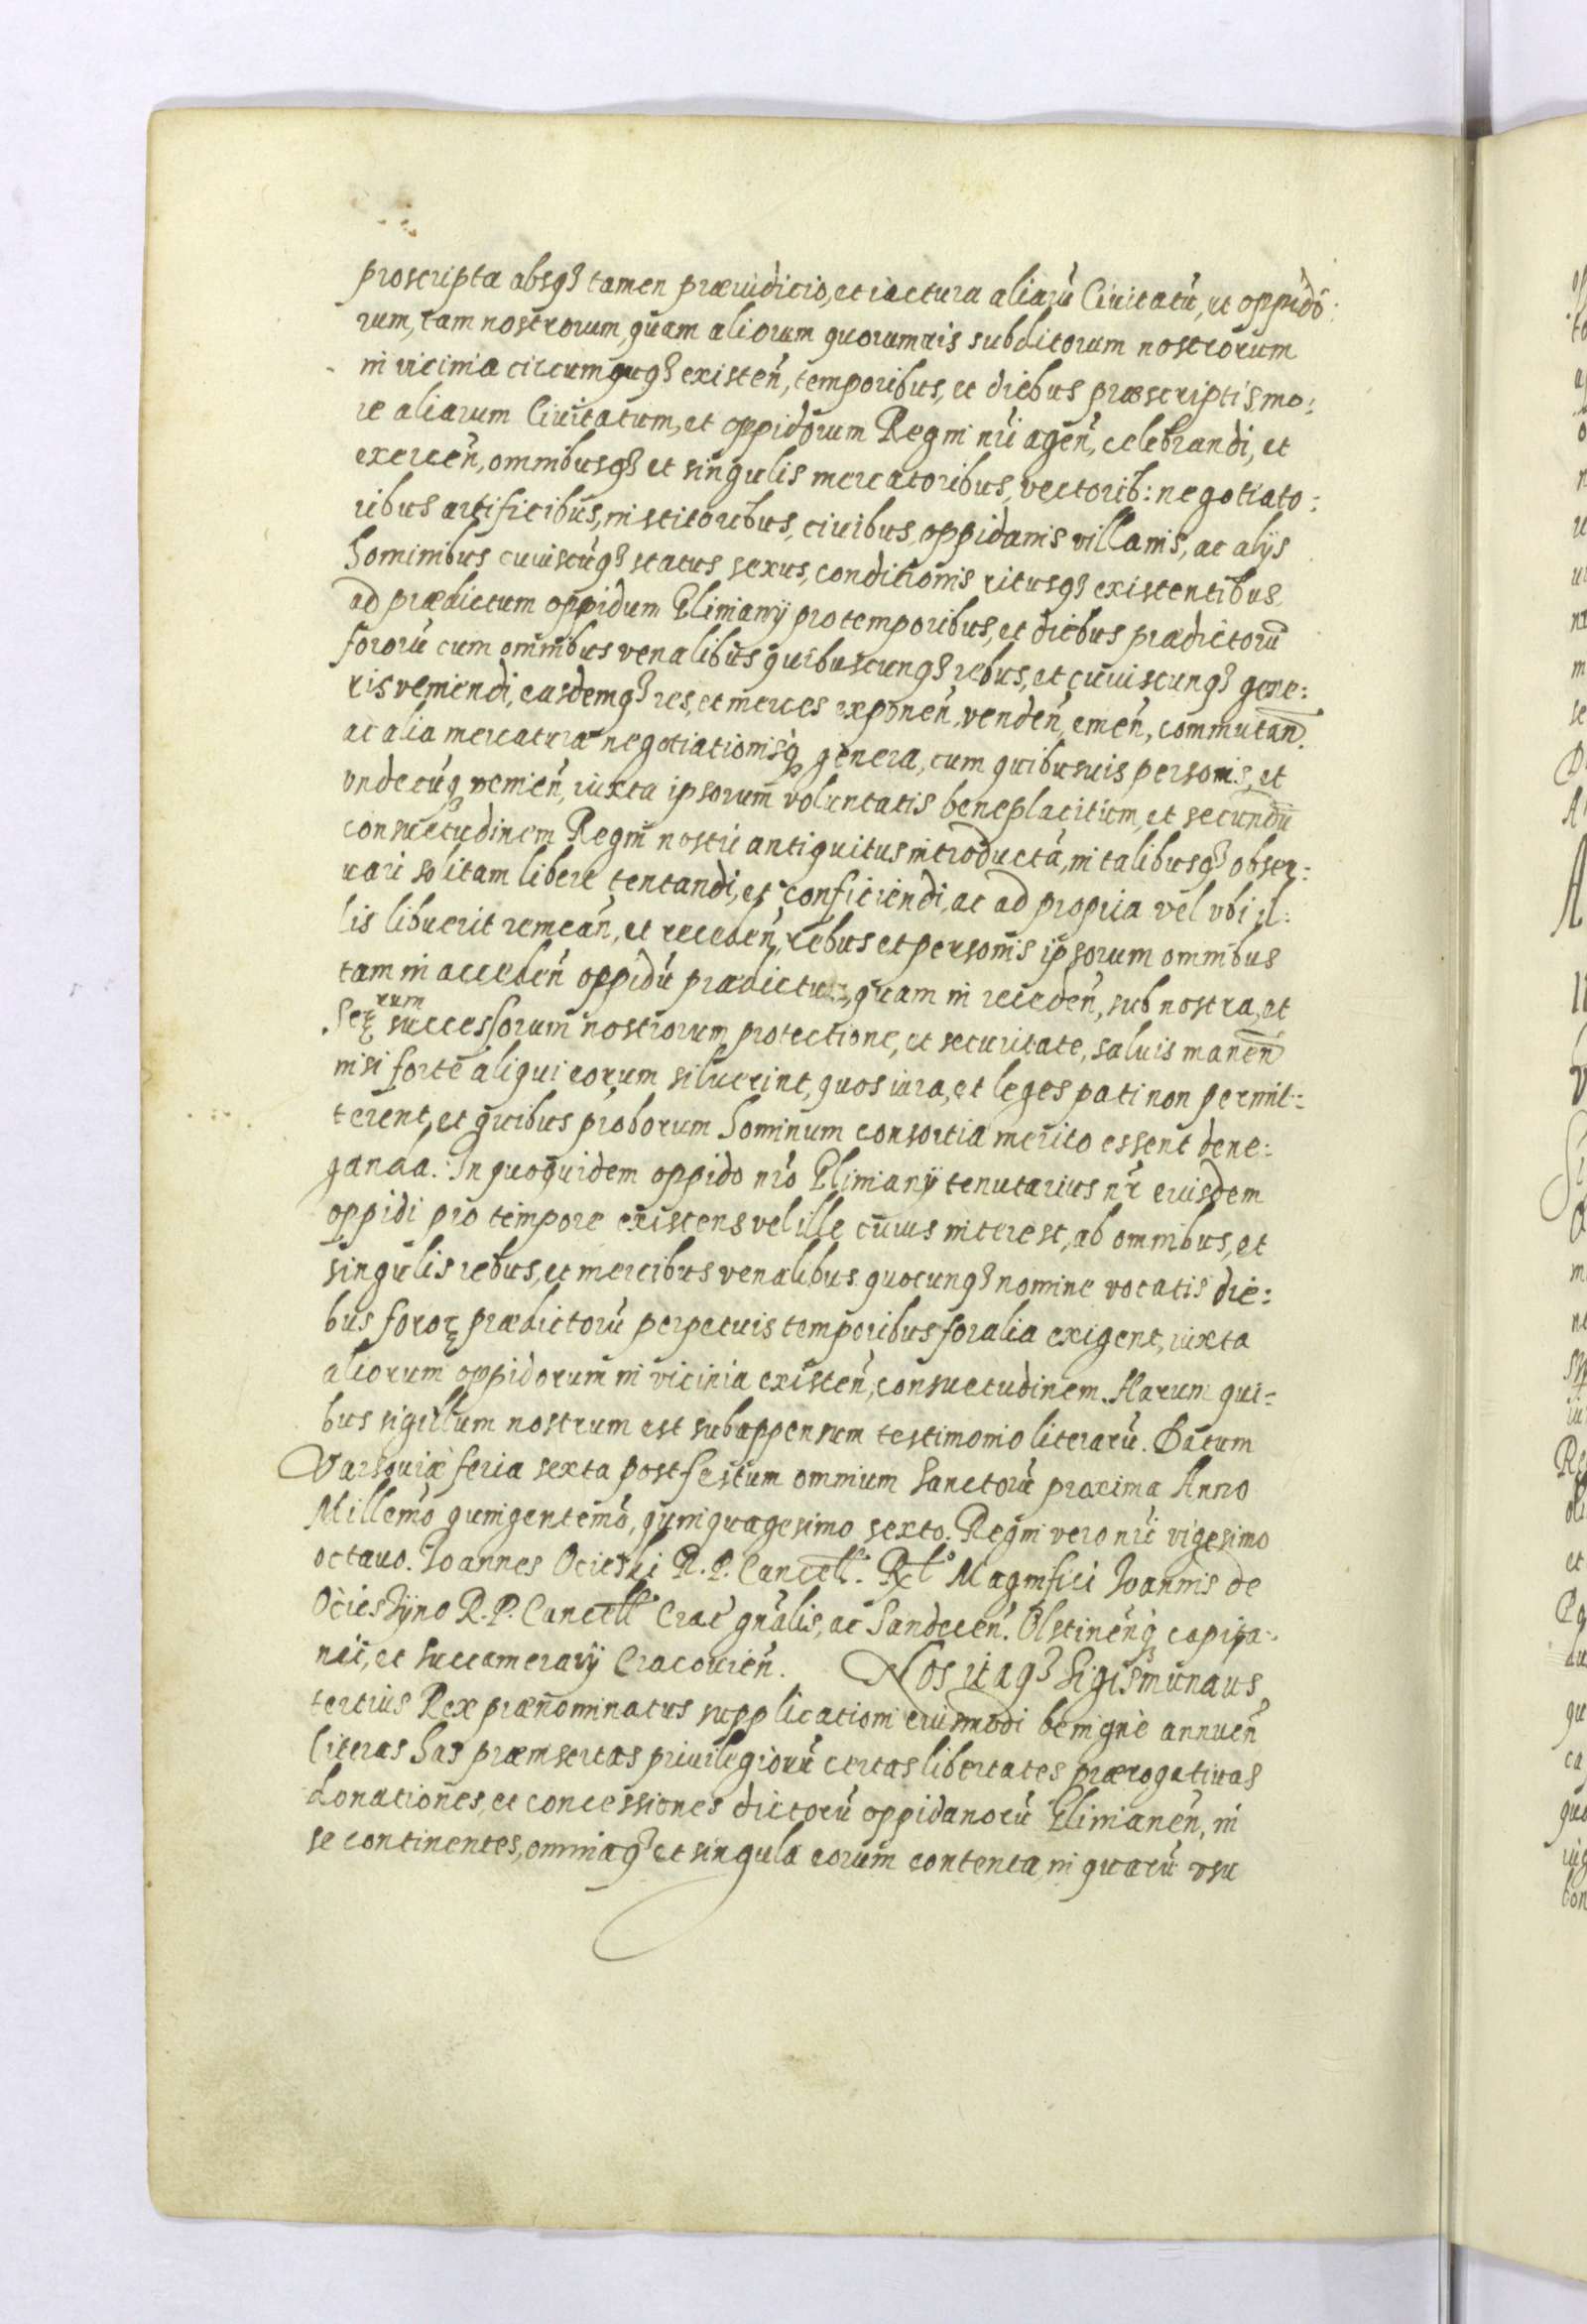 proscripta absq3 tamen præiudicio, et iactura aliarũ Ciuitatũ, et oppido:
rum, tam nostrorum, quam aliorum quorumvis subditorum nostrorum
in vicinia circumquq3 existeñ, temporibus, et diebus præscriptis, mo:
re aliarum Ciuitatum, et oppidorum Regni nri ageñ, celebrandi, et
exerceñ, omnibusq3 et singulis mercatoribus, vectorib: negotiato:
ribus artificibus, institoribus, ciuibus, oppidanis villanis, ac alijs
hominibus cuiuscũq3 status sexus, conditionis ritusq3 existentibus,
ad prædictum oppidum Elimianij pro temporibus, et diebus prædictorũ
fororũ cum omnibus venalibus quibuscunq3 rebus, et cuiuscunq3 gene:
ris veniendi, easdemq3 res, et merces exponeñ, vendeñ, emeñ, commutañ.
ac alia mercaturæ negotiationisq3 genera, cum quibusuis personis, et
vndecũq3 venieñ, iuxta ipsorum voluntatis beneplacitum, et secundũ
consuetudinem Regni nostri antiquitus introductã, in talibusq3 obser:
uari solitam libere tentandi, et conficiendi, ac ad propria vel vbi il:
lis libuerit remeañ, et recedeñ, rebus et personis ipsorum omnibus
tam in accedeñ oppidũ prædictum, quam in recedeñ, sub nostra, et
Serrum successorum nostrorum protectione, et securitate, saluis maneñ
nisi forte aliqui eorum siluerint, quos iura, et leges pati non permit:
terent, et quibus proborum hominum consortia merito essent dene:
ganda. In quoquidem oppido nrõ Elimianij tenutarius nr̃ eiusdem
oppidi pro tempore existens vel ille cuius interest, ab omnibus, et
singulis rebus, et mercibus venalibus quocunq3 nomine vocatis die:
bus fororꝝ prædictorũ perpetuis temporibus foralia exigent, iuxta
aliorum oppidorum in vicinia existeñ, consuetudinem. Harum qui:
bus sigillum nostrum est subappensum testimonio literarũ. Datum
Varsouiæ feria sexta post festum omnium Sanctorũ proxima Anno
Millemõ quingentemõ, quinquagesimo sexto. Regni vero nri vigesimo
octauo. Ioannes Ocieski R. P. Cancell. Rlō Magnifici Ioannis de
Ociesżyno R. P. Cancell Crac gñalis, ac Sandeceñ. Olstineñq3 capita:
nei, et succamerarij Cracouieñ. Nos itaq3 Sigismundus
tertius Rex prænominatus supplicationi eiusmodi benigne annueñ
literas has præinsertas priuilegiorũ certas libertates prærogatiuas
donationes, et concessiones dictorũ oppidanorũ Elimianeñ, in
se continentes, omniaq3 et singula eorum contenta, in quarũ vsu